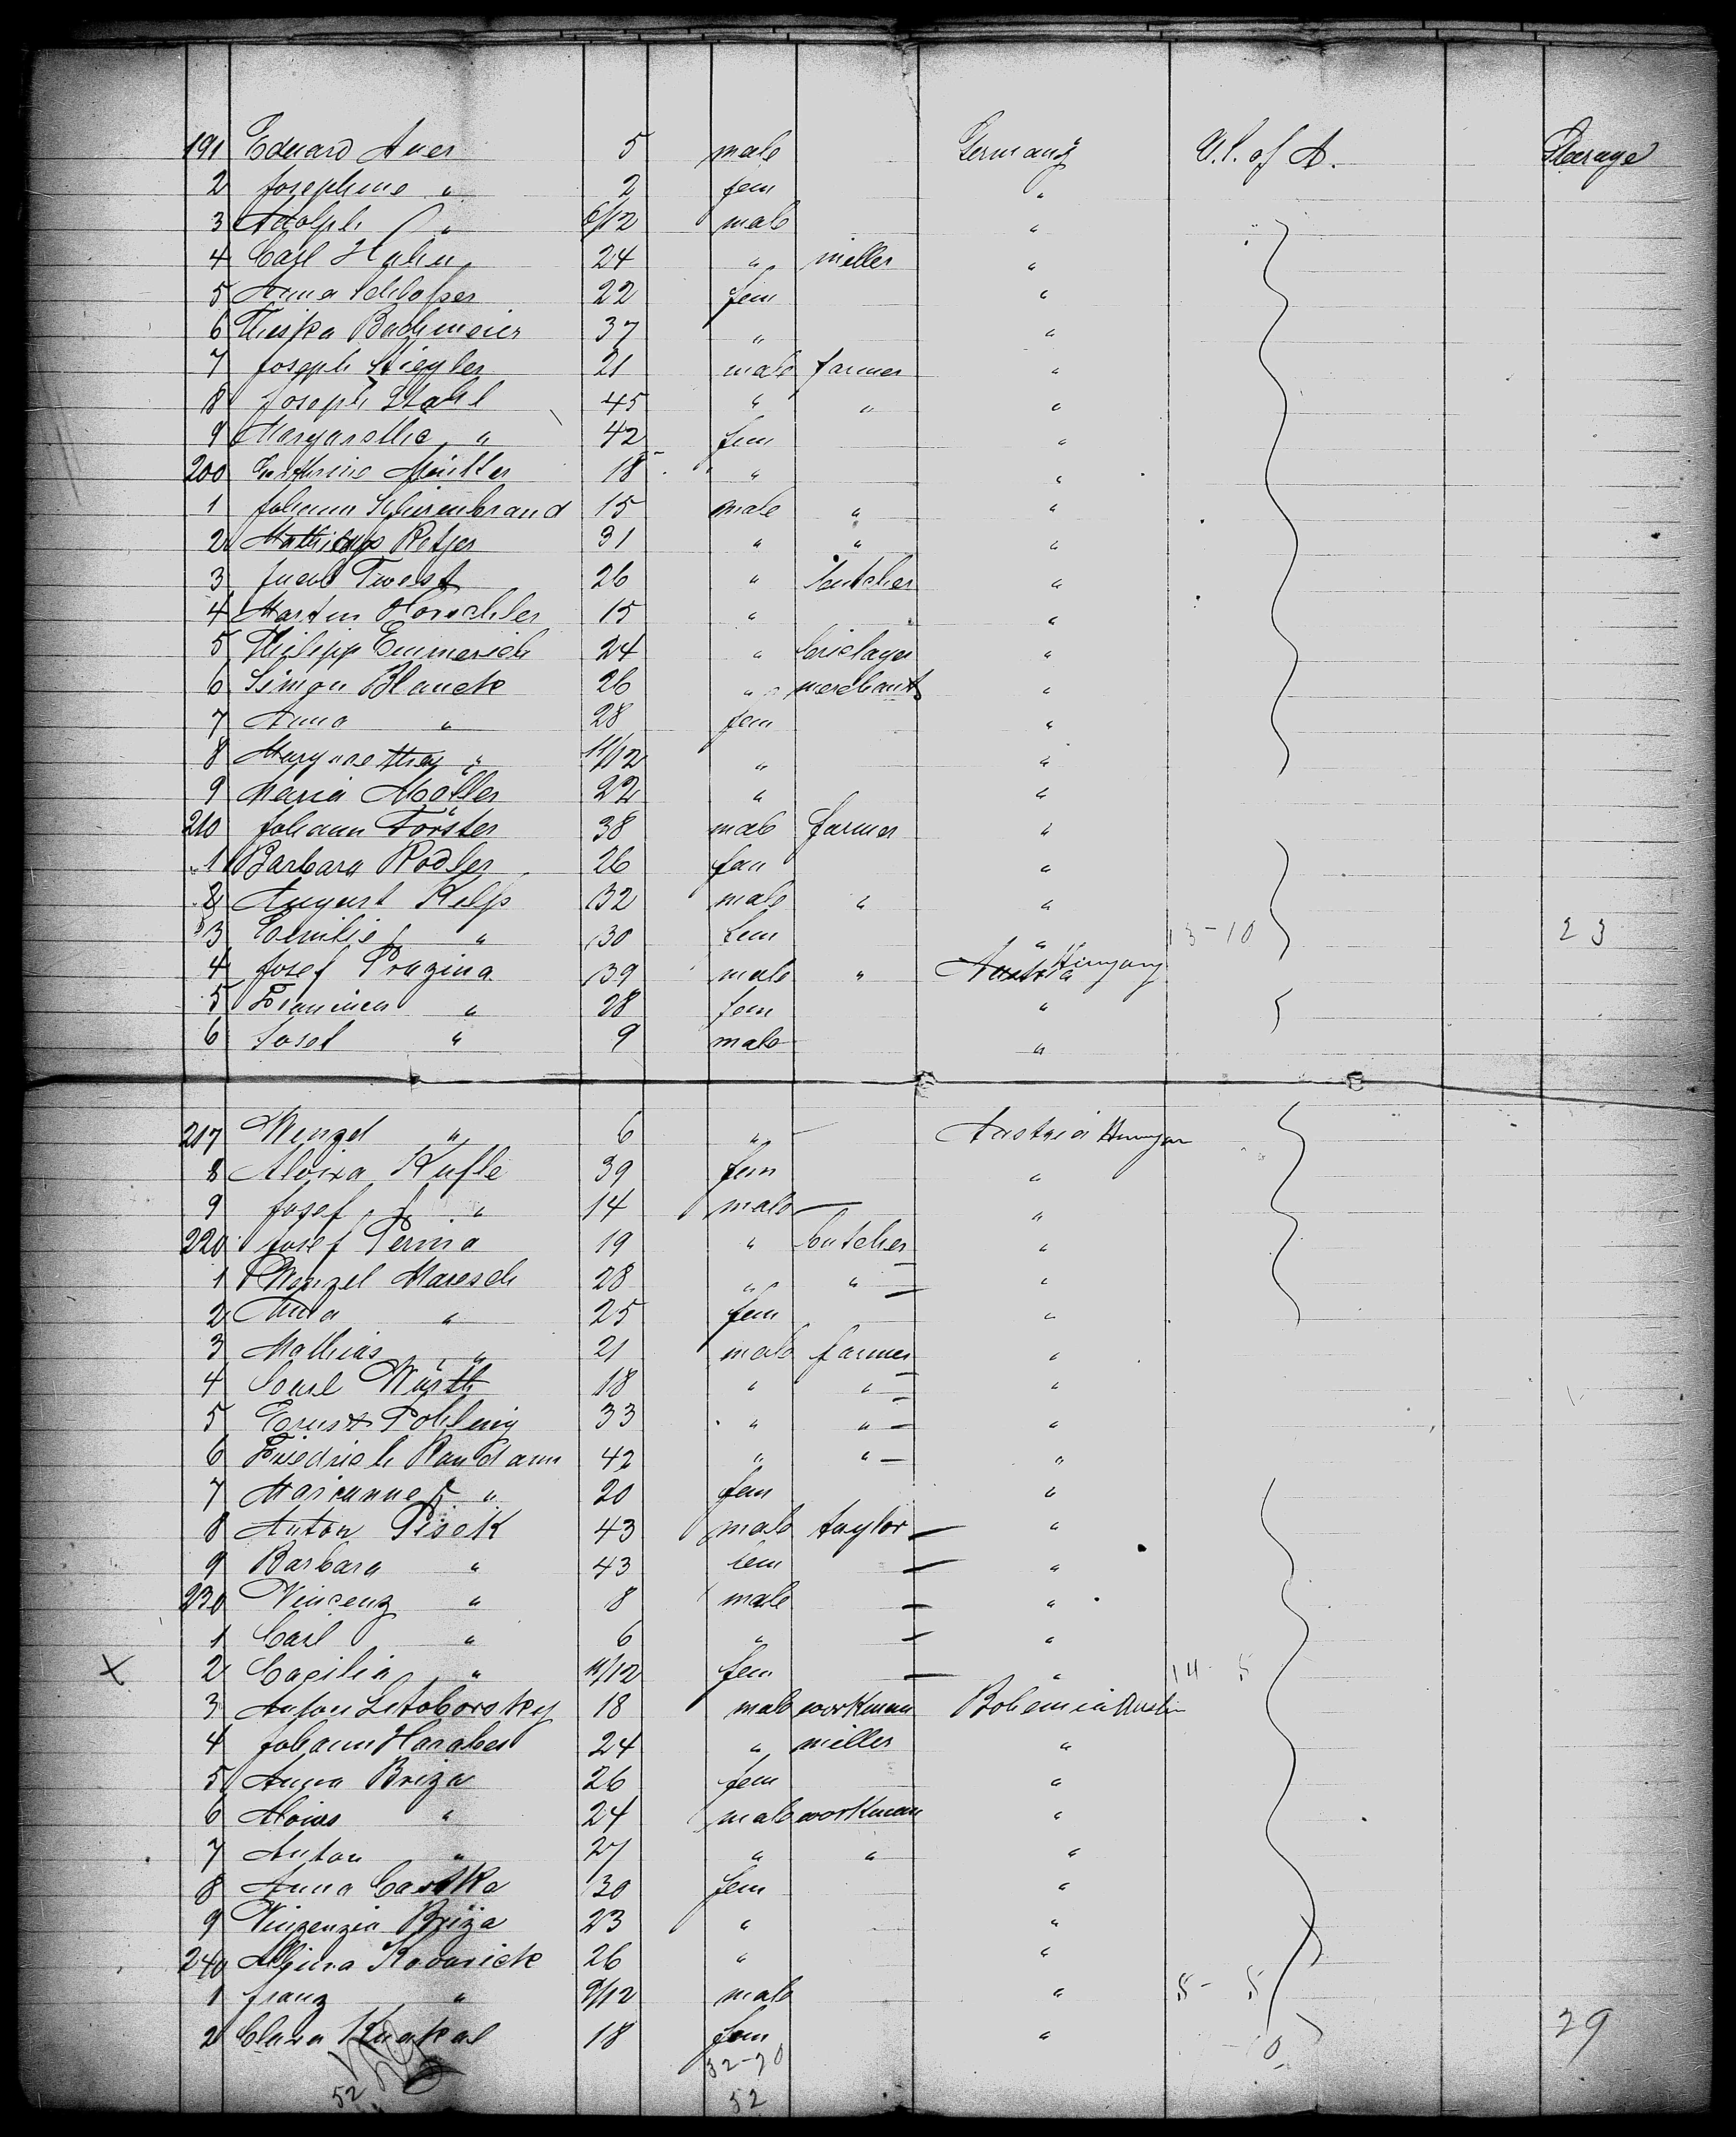 191 Eduard Auer 5 male Germany U.S. of A. Steerage
2 Josephine " 2 fem "
3 Adolph " 6/12 male "
4 Carl Hahn 24 " miller "
5 Anna Schlosser 22 fem "
6 Bachmeier 37 " "
7 Joseph Stiegler 21 male farmer "
8 Joseph Stahl 45 " " "
9 Margarethe " 42 fem "
200 Cathrine Müller 18 " "
1 Johann 15 male " "
2 Mathias 31 " " "
3 26 " butcher "
4 Martin 15 " "
5 Philipp Emmerich 24 " briclayer "
6 Simon Blanck 26 " merchant "
7 Anna " 28 fem "
8 Margarethe " 11/12 " "
9 Maria 22 " "
210 Johann Förster 38 male farmer "
1 Barbara Rodler 26 fem "
2 August 32 male " "
3 Emilie " 30 fem " 13-10 23
4 Josef Prazina 39 male " Austria Hungary
5 " 28 fem "
6 Josef " 9 male "
217 Wenzel " 6 " Austria Hungar
8 Aloisa Kufle 39 fem "
9 Josef " 14 male "
220 Josef Perina 19 " butcher "
1 Wenzel Maresch 28 " " "
2 Anna " 25 fem "
3 Mathias " 21 male farmer "
4 Würth 18 " " "
5 Ernst Pohling 33 " " "
6 Friedrich 42 " " "
7 Marianne " 20 fem "
8 Anton Pisek 43 male taylor "
9 Barbara " 43 fem "
230 Vincenz " 8 male "
1 Carl " 6 " "
X 2 Cacilia " 11/12 fem " 14 5
3 Anton 18 male workman Bohemia Austri
4 Johann 24 " miller "
5 Anna Briza 26 fem "
6 Alois " 24 male workman "
7 Anton " 27 " " "
8 Anna 30 fem "
9 Vinzenzia Briza 23 " "
240 Kovarick 26 " "
1 Franz " 9/12 male " 5- 5
2 Clara 18 fem " 29
32-20
52 52